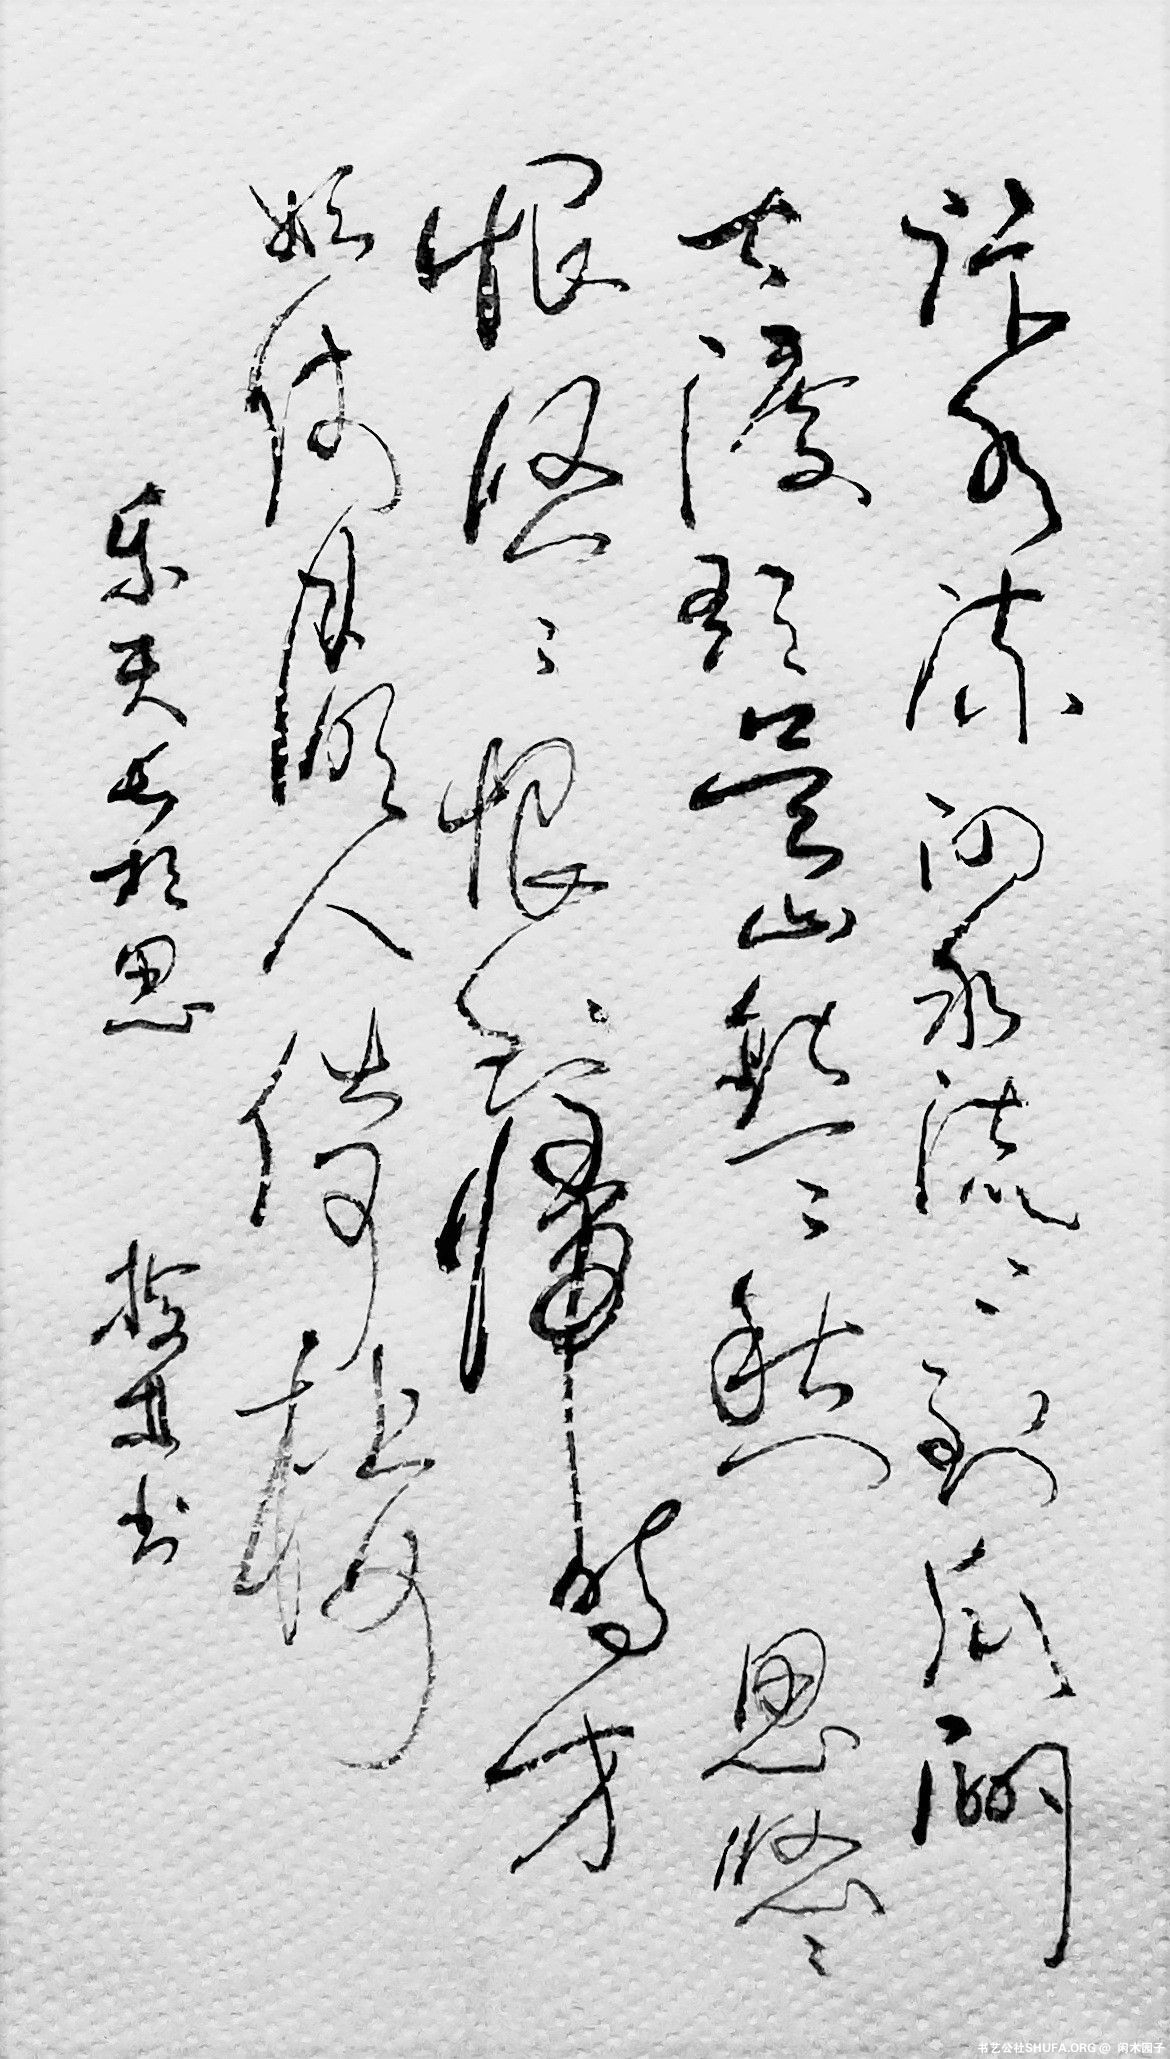 汴水流泗水流〻到瓜洲
古渡頭吴山點〻愁思悠〻
恨悠〻恨到歸時方
始休月明人倚樓
乐天长相思 书
书艺公社SHUFA.ORG @ 闲木园子